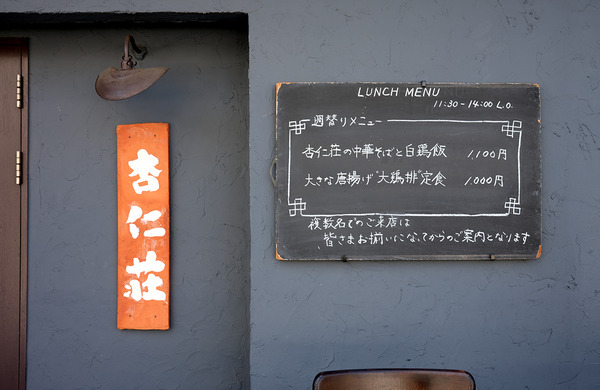 杏仁荘
LUNCH MENU
11:30-14:00 L.O.
週替りメニュー
杏仁荘の中華そばと白鶏飯 1,100円
大きな唐揚げ"大鶏排"定食 1,000円
複数名でのご来店は
皆さまお揃いになってからのご案内となります